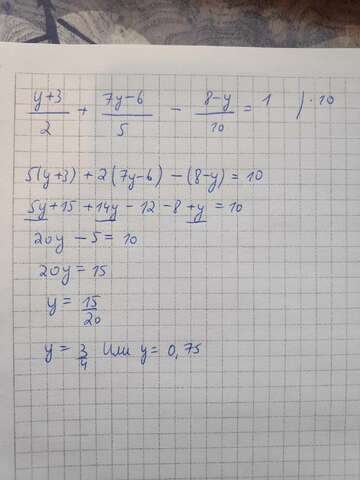 y+3/2 + 7y-6/5 - 8-y/10 = 1 /·10
5(y+3) + 2(7y-6) - (8-y) = 10
5y + 15 + 14y - 12 - 8 + y = 10
20y - 5 = 10
20y = 15
y = 15/20
y = 3/4 или y = 0,75